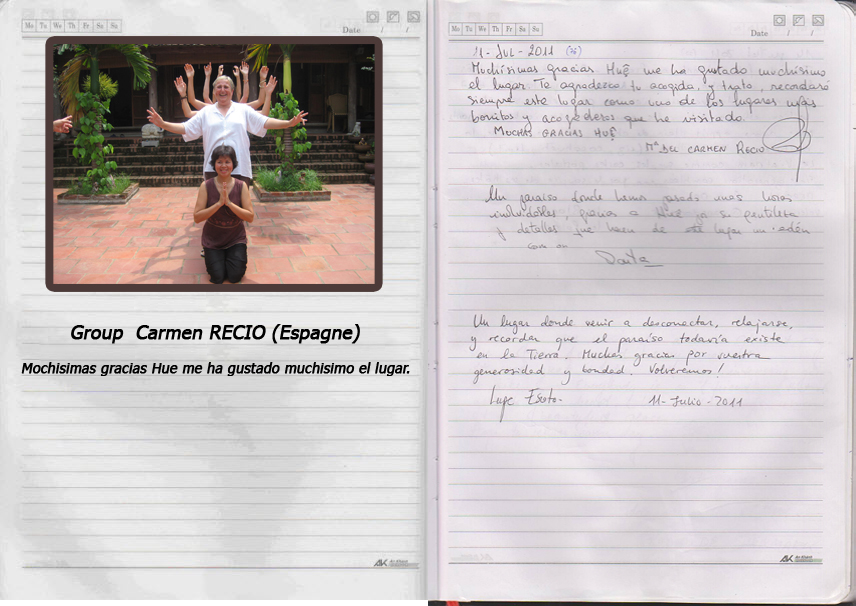 Mo Tu We Th Fr Sa Su
Date / /
Group Carmen RECIO (Espagne)
Mochisimas gracias Hue me ha gustado muchisimo el lugar.
AK
Mo Tu We Th Fr Sa Su
Date / /
11-JUL-2011 (76)
Muchísimas gracias Huệ me ha gustado muchísimo
el lugar Te agradezco tu acogida, y trato, recordaré
siempre este lugar como uno de los lugares más
bonitos y acogedores que he visitado.
MUCHAS GRACIAS HUỆ
Mª DEL CARMEN RECIO
Un paraíso donde hemos pasado unas horas
inolvidables, gracias a Hué y su gentileza
y detalles que hacen de este lugar un edén
Un lugar donde venir a desconectar, relajarse,
y recordar que el paraíso todavía existe
en la Tierra. Muchas gracias por vuestra
generosidad y bondad. Volveremos!
Lupe
11-Julio-2011
AK